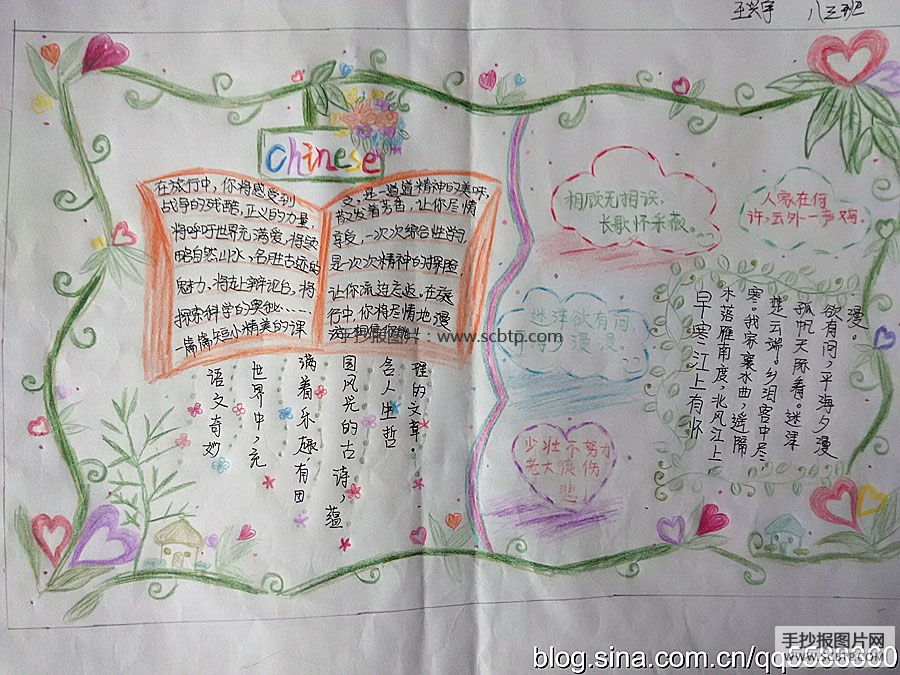 王兴宇 八三班
Chinese
在旅行中，你将感受到
战争的残酷，正义的力量，
将呼吁世界充满爱，将领
略自然山水，名胜古迹的
魅力，将赴上辩论台，将
探索科学的奥秘……
一篇篇短小精美的课
文，是一道道精神的美味，
散发着芳香，让你尽情
享受，一次次综合性学习，
是一次次精神的探险，
让你流连忘返，在旅
行中，你将尽情地漫
语文奇妙
世界中，充
满着乐趣，有田
园风光的古诗，蕴
含人生哲
理的文章。
相顾无相识，
长歌怀采薇。
人家在何
许，云外一声鸡。
迷津欲有问
海夕漫漫
少壮不努力
老大徒伤
悲
早寒江上有怀
木落雁南度，北风江上
寒。我家襄水曲，遥隔
楚云端。乡泪客中尽，
孤帆天际看。迷津
欲有问，平海夕漫
漫。
手抄报图片网：www.scbtp.com
手抄报图片网
www.SCBTP.COM